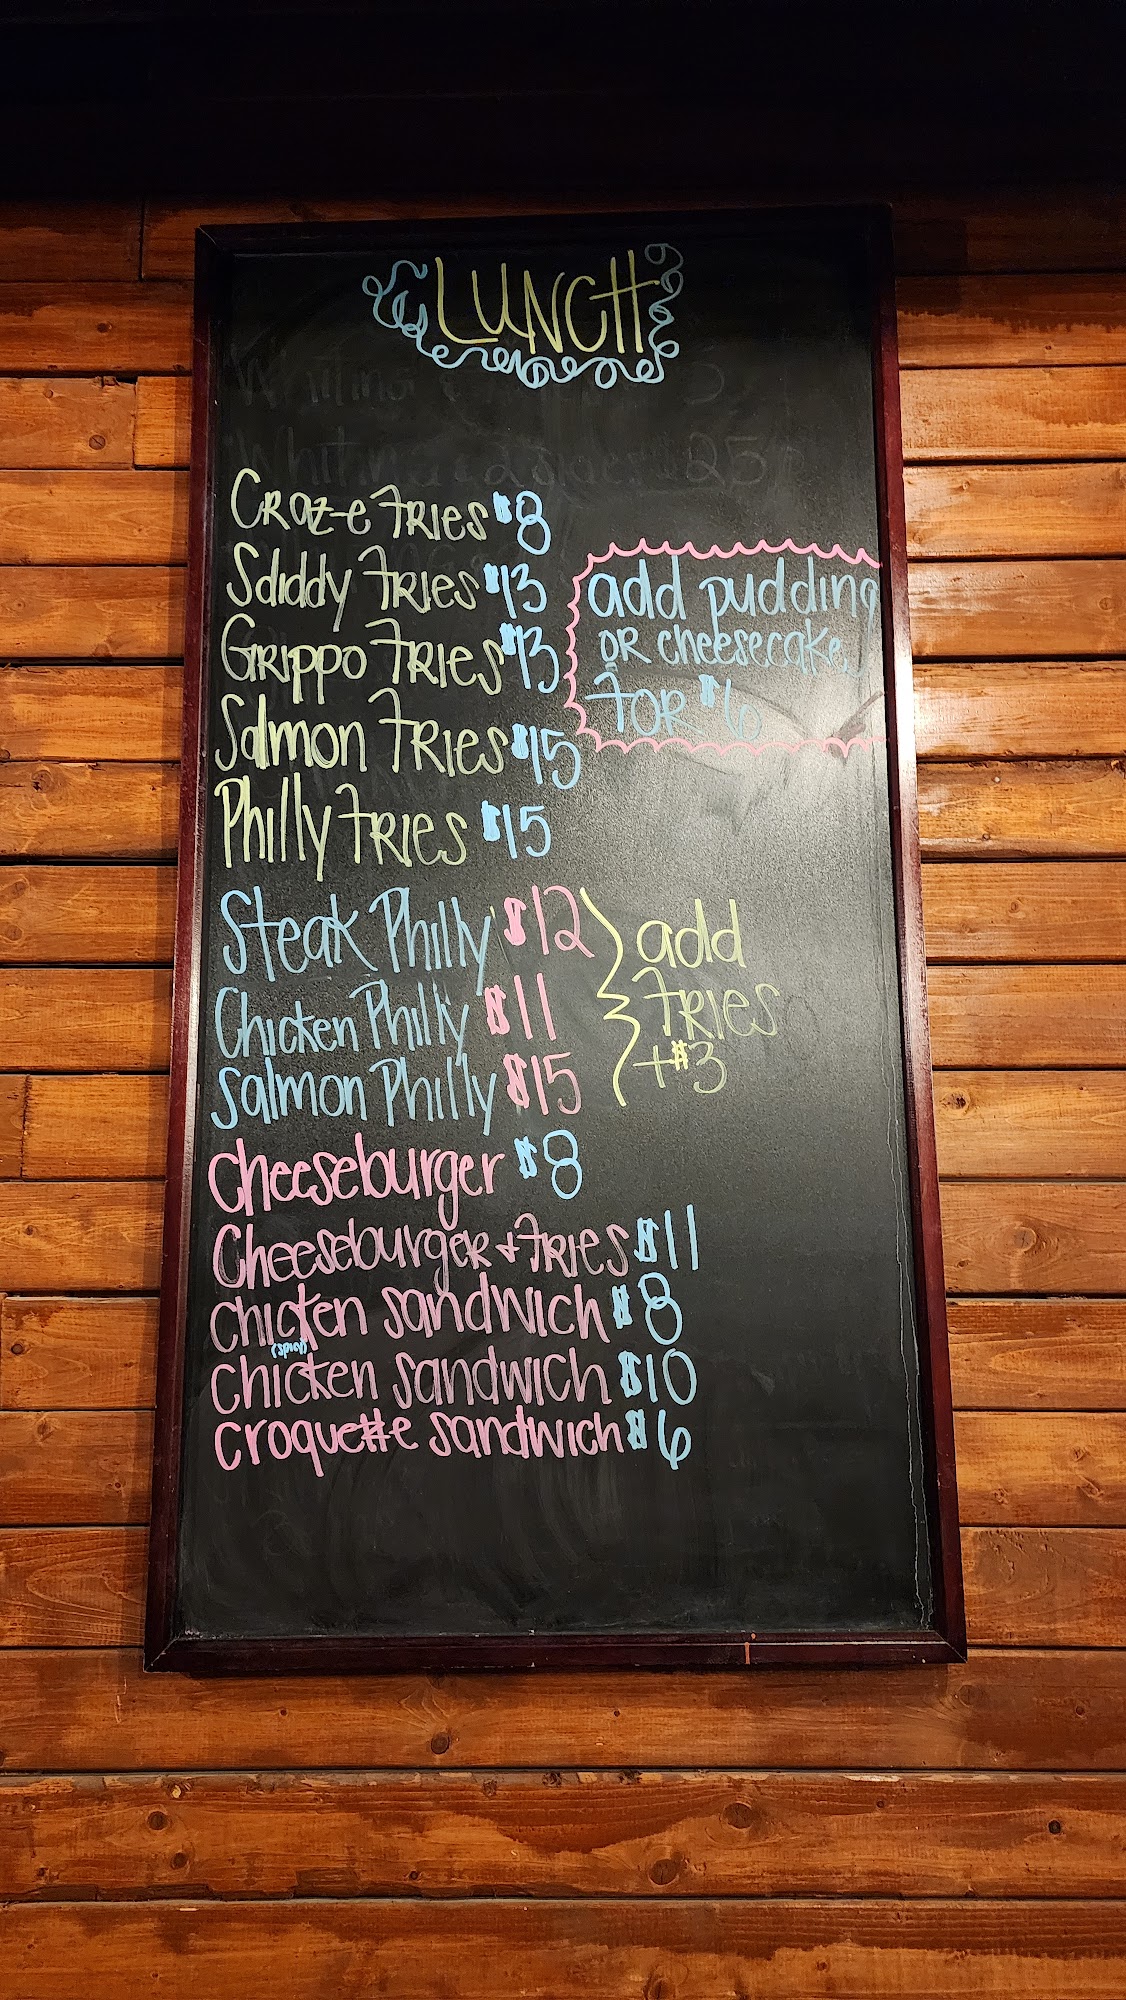 LUNCH
Craz-e Fries $8
Sdiddy Fries $13
Grippo Fries $13
Salmon Fries $15
Philly Fries $15
add pudding
or cheesecake
for $6
Steak Philly $12
Chicken Philly $11
Salmon Philly $15
add
fries
+$3
cheeseburger $8
Cheeseburger + Fries $11
chicken sandwich $8
(spicy)
chicken sandwich $10
croquette sandwich $6